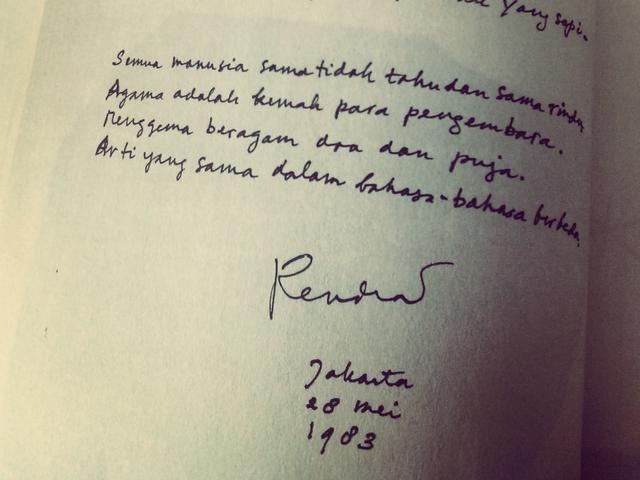 yang sepi.
Semua manusia sama tidak tahu dan sama rindu
Agama adalah kemah para pengembara.
Menggema beragam doa dan puja.
Arti yang sama dalam bahasa-bahasa berbeda.
Rendra
Jakarta
28 mei
1983